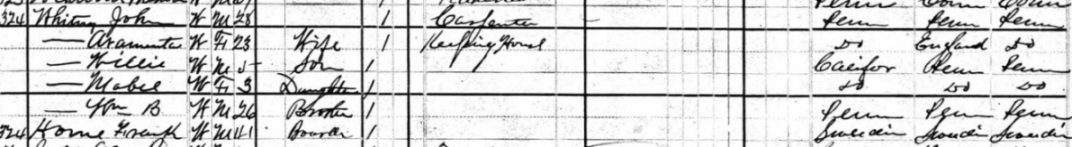 324 Whitney John W M 28 1 Carpenter Penn Penn Penn
— Araminta W F 23 Wife 1 Keeping House Do England Do
— Willie W M 5 Son 1 Califor Penn Penn
— Mabel W F 3 Daughter 1 Do Do Do
— Wm B W M 26 Brother 1 Penn Penn Penn
324 Horne Frank W M 41 Boarder 1 Sweedin Sweedin Sweedin